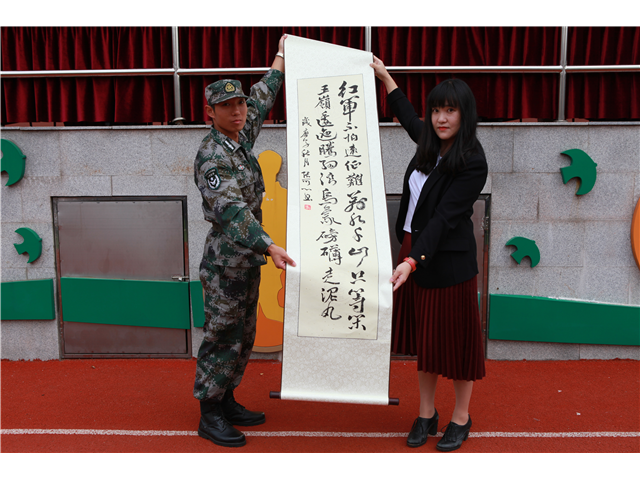 紅軍不怕遠征難萬水千山只等閒
五嶺逶迤騰細浪烏蒙磅礴走泥丸